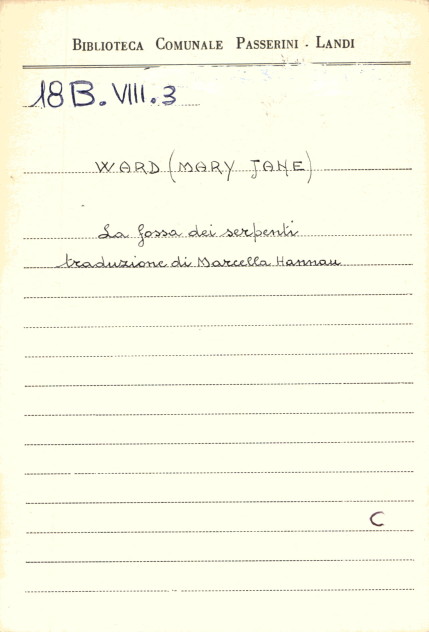 BIBLIOTECA COMUNALE PASSERINI - LANDI
18B.VIII.3
WARD (MARY JANE)
La fossa dei serpenti
traduzione di Marcella Hannau
C